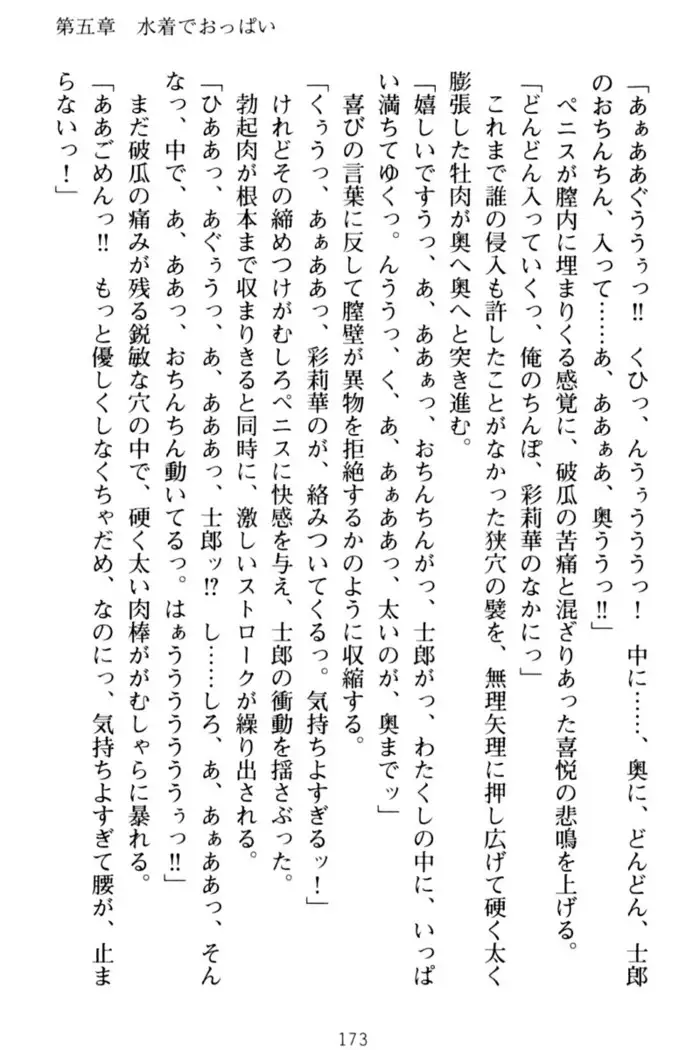 第五章　水着でおっぱい
「あぁああぐううぅっ‼　くひっ、んうぅうううっ！　中に……、奥に、どんどん、士郎
のおちんちん、入って……あ、ああぁあ、奥ううっ‼」
ペニスが膣内に埋まりくる感覚に、破瓜の苦痛と混ざりあった喜悦の悲鳴を上げる。
「どんどん入っていくっ、俺のちんぽ、彩莉華のなかにっ」
これまで誰の侵入も許したことがなかった狭穴の襞を、無理矢理に押し広げて硬く太く
膨張した牡肉が奥へ奥へと突き進む。
「嬉しいですうっ、あ、ああぁっ、おちんちんがっ、士郎がっ、わたくしの中に、いっぱ
い満ちてゆくっ。んううっ、く、あ、あぁああっ、太いのが、奥までッ」
喜びの言葉に反して膣壁が異物を拒絶するかのように収縮する。
「くぅうっ、あぁああっ、彩莉華のが、絡みついてくるっ。気持ちよすぎるッ！」
けれどその締めつけがむしろペニスに快感を与え、士郎の衝動を揺さぶった。
勃起肉が根本まで収まりきると同時に、激しいストロークが繰り出される。
「ひああっ、あぐぅうっ、あ、あああっ、士郎ッ⁉　し……しろ、あ、あぁああっ、そん
なっ、中で、あ、ああっ、おちんちん動いてるっ。はぁううううううぅっ‼」
まだ破瓜の痛みが残る鋭敏な穴の中で、硬く太い肉棒ががむしゃらに暴れる。
「ああごめんっ‼　もっと優しくしなくちゃだめ、なのにっ、気持ちよすぎて腰が、止ま
らないっ！」
173